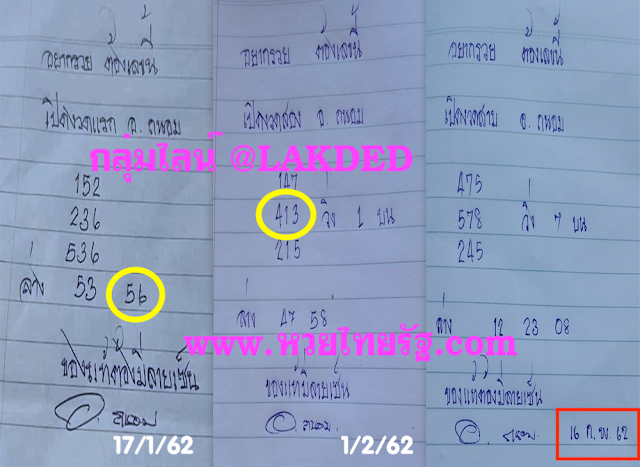 อยากรวย ต้องเลขนี้
เปิดงวดแรก อ. ถนอม
152
236
536
ล่าง 53 56
ของแท้ต้องมีลายเซ็น
ถนอม
17/1/62
อยากรวย ต้องเลขนี้
เปิดงวดสอง อ. ถนอม
147
413 วิ่ง 1 บน
215
ล่าง 47 58
ของแท้มีลายเซ็น
ถนอม
1/2/62
อยากรวย ต้องเลขนี้
เปิดงวดสาม อ. ถนอม
475
578 วิ่ง 7 บน
245
ล่าง 12 23 08
ของแท้ต้องมีลายเซ็น
ถนอม
16 ก.พ. 62
กลุ่มไลน์ @LAKDED
www.หวยไทยรัฐ.com